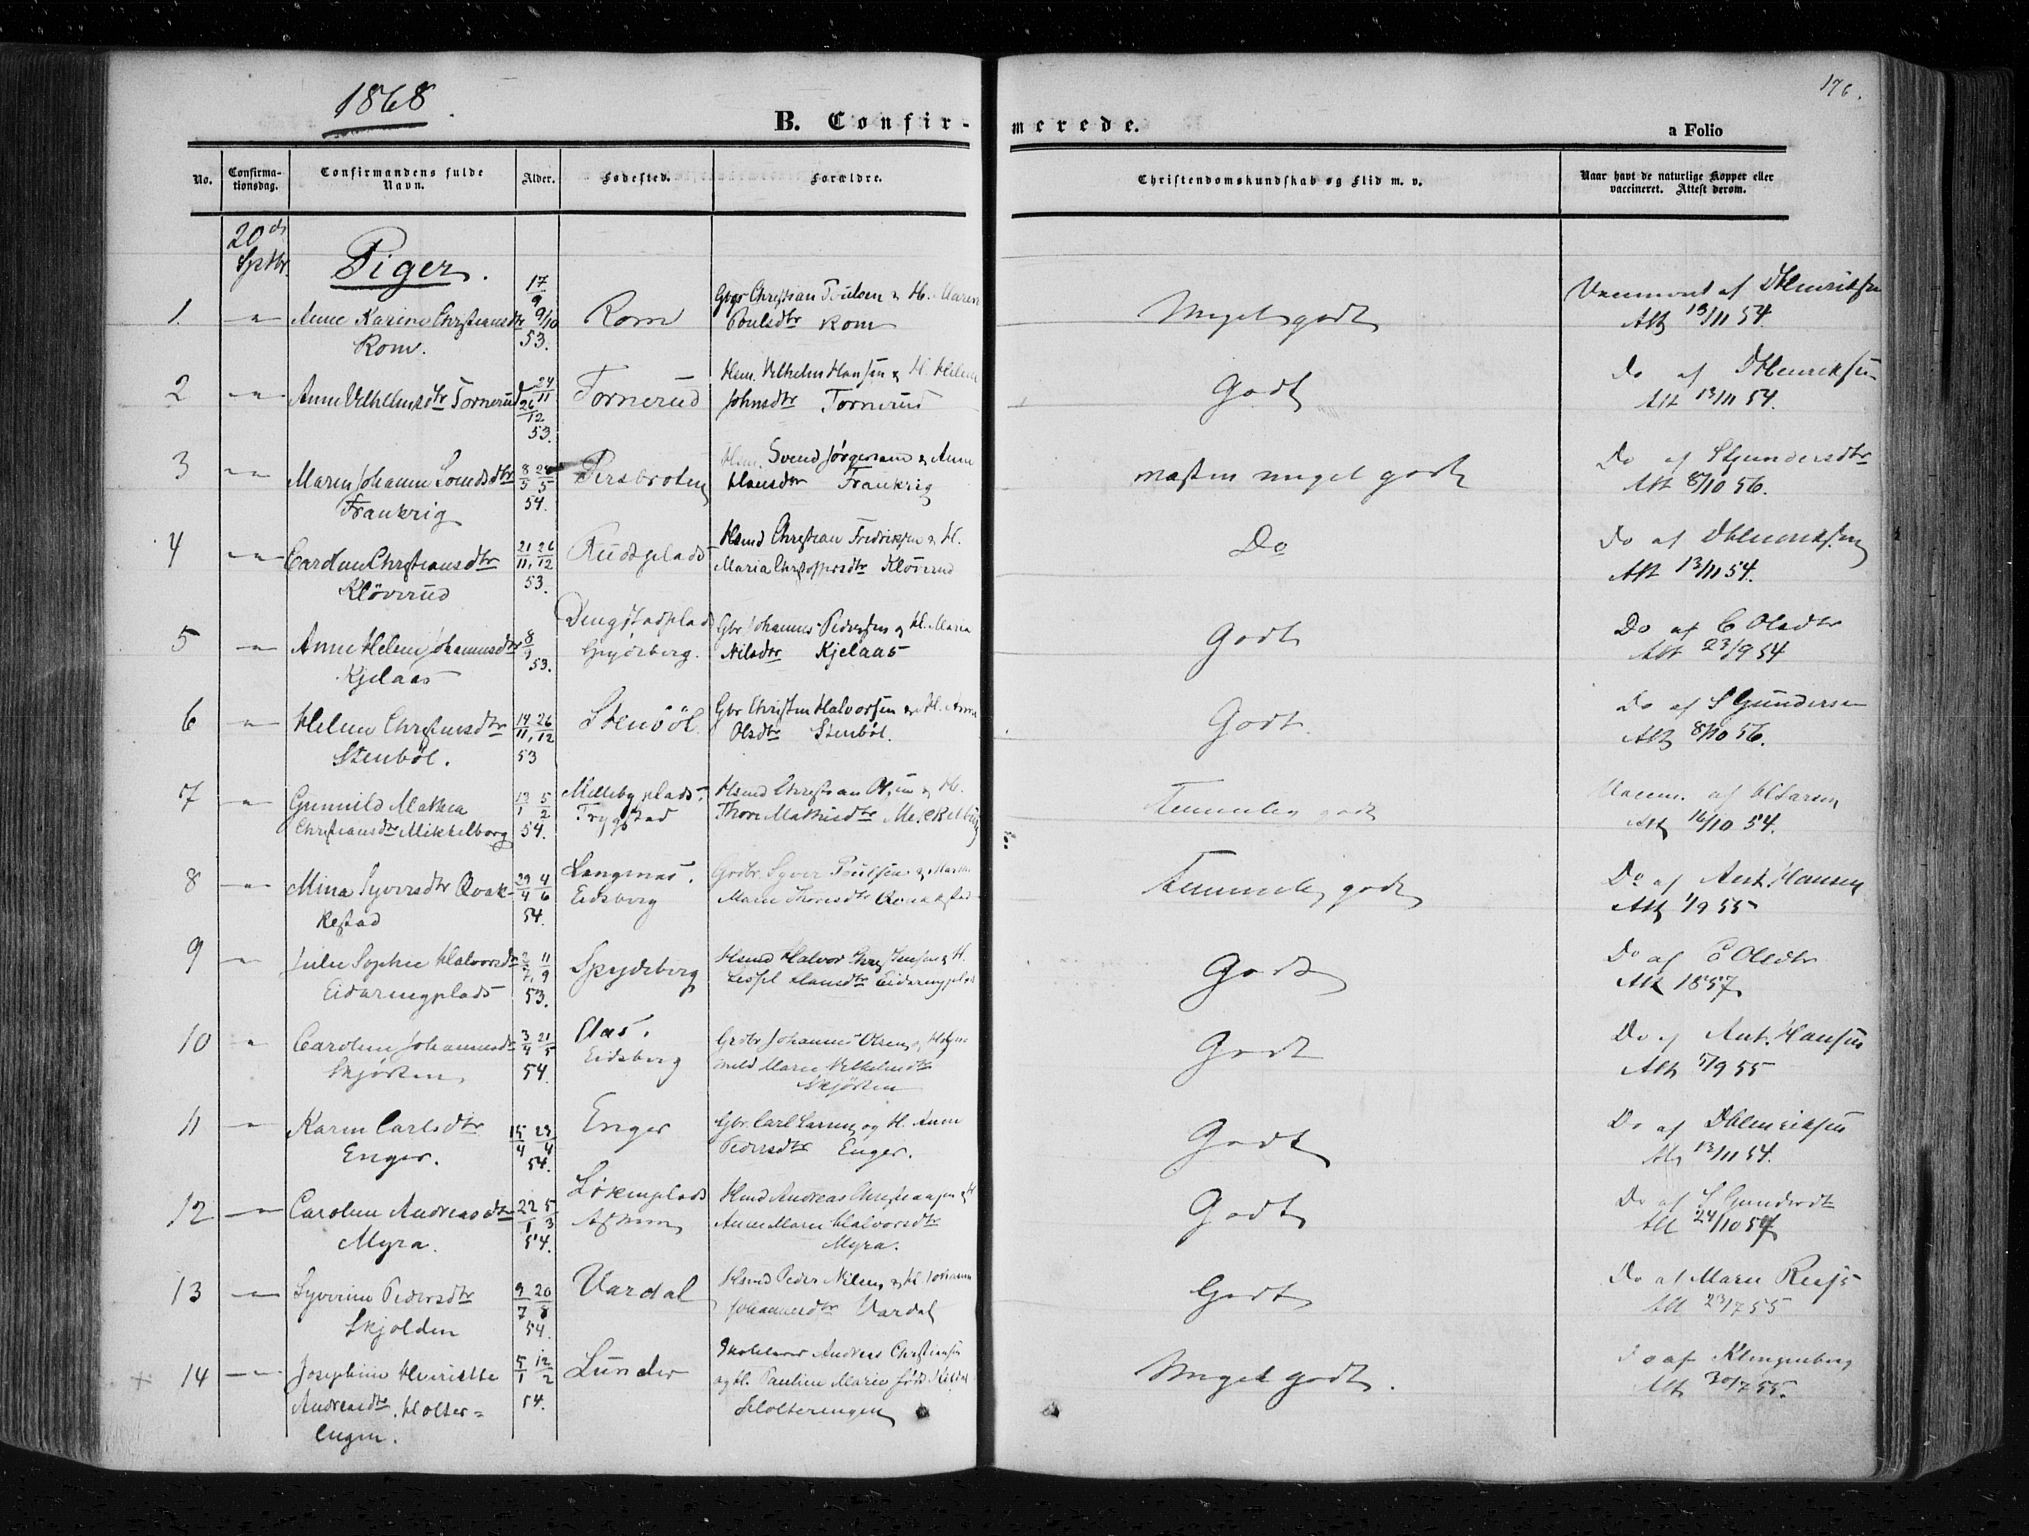 1868
176.
B. Confir-
merede.
a Folio
No.
Confirma-
tionsdag.
Confirmandens fulde
Navn.
Alder.
Fødested.
Forældre.
Christendomskundskab og Flid m. v.
Naar havt de naturlige Kopper eller
vaccineret. Attest derom.
20de
Septbr.
Piger.
1. Anne Karine Christiansdtr 17/9 9/10 Rom Gbr Christian Poulsen & H. Maren Meget godt
Rom. 53. Poulsdtr Rom Att 13/11 54.
2 Anne Vilhelmsdtr Tornerud 24/11 Tornerud Hsm. Vilhelm Hansen & H. Helene Godt Do af DHenriksen
26/12 53. Johnsdtr Tornerud Att 13/11 54.
3 Maren Johanne Svendsdtr 8/3 24/5 Persbroten Hsm. Svend Jørgensen & Anne næsten meget godt Do af SGundersdtr
Frankrig 54. Hansdtr Frankrig Att 8/10 56.
4 Caroline Christiansdtr 21/11, 26/12 Rudsplads Hsmd Christian Fredriksen & H. Do Do af DHenriksen
Kløverud 53. Maria Christophersdtr Kløverud Att 13/11 54.
5 Anne Helene Johannesdtr 8/9 Gbr Johannes Pedersen og H. Maria Godt Do af C Olsdtr
Kjelaas 53. Nilsdtr Kjelaas Att 23/9 54
6 Helene Christensdtr 14/11, 26/12 Stenbøl Gbr Christen Halvorsen & H. Anne Godt. Do af S Gundersen
Stenbøl. 53 Olsdtr Stenbøl. Att 8/10 56.
7 Gunnild Mathea 13/1 5/2 Melleby plads, Hsmd Christian Olsen & H. Temmelig godt Vaccin. af HLarsen
Christiansdtr Mikkelborg 54. Trygstad Thore Mathisdtr Att 16/10 54.
8 Mina Syversdtr Qvak- 29/4 4/6 Langnæs. Grdbr. Syver Poulsen & Marthe Temmelig godt Do af Ant. Hansen
kestad 54. Eidsberg Marie Thoresdtr Qvakkestad Att 1/9 55
9 Julie Sophie Halvorsdtr 2/7, 11/9 Spydeberg Hsmd Halvor Chr. Jensen & H. Godt Do af C Olsdtr
Eidaringplads 53. Hansdtr Eidaringplads Att 1857
10 Caroline Johannesdtr 3/4 21/5 Aas. Grdbr Johannes Olsen og Godt Do af Ant. Hansen
Skjørten 54. Eidsberg Marie Vilhelmsdtr Att 5/9 55
Skjørten
11 Karen Carlsdtr 15/4 23/4 Enger Gbr. Carl Larsen og H. Anne Godt Do af DHenriksen
Enger. 54. Pedersdtr Enger. Att 13/11 54.
12 Caroline Andreasdtr 22/1 5/3 Løkenplads Hsmd Andreas Christiansen & H Godt Do af S Gundersdt
Myra. 54. Askim Anne Marie Halvorsdtr Att 24/10 57
Myra.
13 Syverine Pedersdtr 9/7 20/8 Vardal Hsmd Peder Nilsen & H. Johanne Godt Do af Maren
Skjolden 54. Johannesdtr Vardal Att 23/7 55
14 Josephine Henriette 5/1 12/2 Lunder Skolelærer Andreas Christiansen Meget godt. Do af Klingenberg
Andreasdtr. Holter= 54. og H. Pauline Marie født Att 30/7 55.
engen. Holterengen